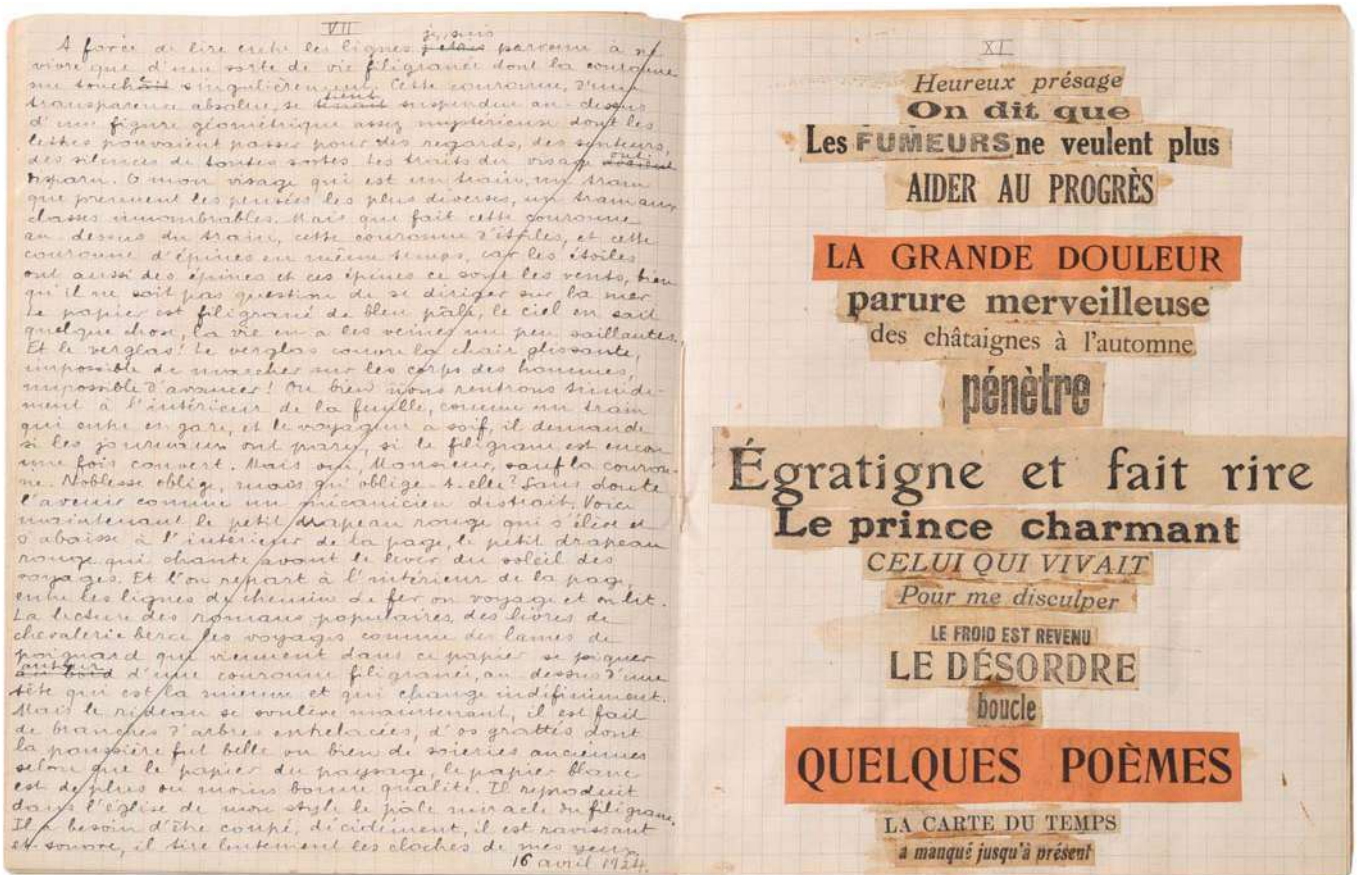 VII
A force de lire entre les lignes j'étais je suis parvenu à ne
vivre que d'une sorte de vie filigranée dont la couronne
me touchait singulièrement. Cette couronne, d'une
transparence absolue, se tenait tient suspendue au-dessus
d'une figure géométrique assez mystérieuse dont les
lettres pouvaient passer pour des regards, des senteurs,
des silences de toutes sortes. Les traits du visage avaient ont
disparu. O mon visage qui est un train, un train
que prennent les pensées les plus diverses, un train aux
classes innombrables. Mais que fait cette couronne
au-dessus du train, cette couronne d'étoiles, et cette
couronne d'épines en même temps, car les étoiles
ont aussi des épines et ces épines ce sont les vents, bien
qu'il ne soit pas question de se diriger sur la mer.
Le papier est filigrané de bleu pâle, le ciel en sait
quelque chose, la vie en a les veines un peu saillantes.
Et le verglas! Le verglas couvre la chair glissante,
impossible de marcher sur les corps des hommes,
impossible d'avancer! Ou bien nous rentrons timide-
ment à l'intérieur de la feuille, comme un train
qui entre en gare, et le voyageur a soif, il demande
si les journaux ont paru, si le filigrane est encore
une fois couvert. Mais oui, Monsieur, sauf la couron-
ne. Noblesse oblige, mais qu'oblige-t-elle? Sans doute
l'avenir comme un mécanicien distrait. Voici
maintenant le petit drapeau rouge qui s'élève et
s'abaisse à l'intérieur de la page, le petit drapeau
rouge qui chante avant le lever du soleil des
voyages. Et l'on repart à l'intérieur de la page,
entre les lignes de chemin de fer on voyage et on lit.
La lecture des romans populaires, des livres de
chevalerie berce les voyages comme des lames de
poignard qui viennent dans ce papier se joigner
au bord autour d'une couronne filigranée, au-dessus d'une
tête qui est la mienne et qui change indéfiniment.
Mais le rideau se soulève maintenant, il est fait
de branches d'arbres entrelacées, d'os grattés dont
la poussière fut belle ou bien de soieries anciennes
selon que le papier du paysage, le papier blanc
est de plus ou moins bonne qualité. Il reproduit
dans l'église de mon style le pâle miracle du filigrane.
Il a besoin d'être coupé, décidément, il est ravissant
et sonore, il tire lentement les cloches de mes yeux.
16 avril 1924.
XI
Heureux présage
On dit que
Les FUMEURS ne veulent plus
AIDER AU PROGRÈS
LA GRANDE DOULEUR
parure merveilleuse
des châtaignes à l'automne
pénètre
Égratigne et fait rire
Le prince charmant
CELUI QUI VIVAIT
Pour me disculper
LE FROID EST REVENU
LE DÉSORDRE
boucle
QUELQUES POÈMES
LA CARTE DU TEMPS
a manqué jusqu'à présent